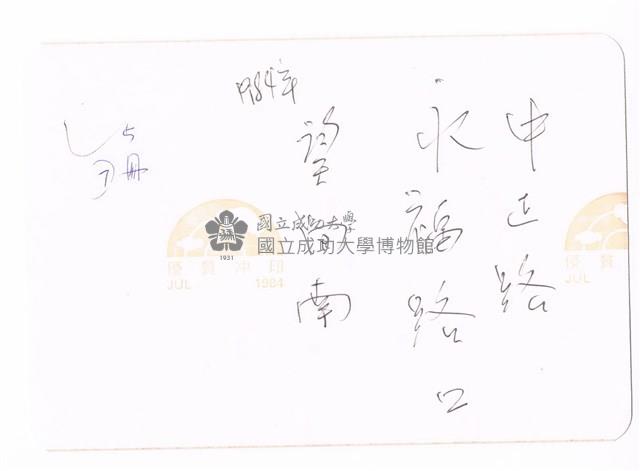 中正路
永福路口
望向南
1984年
5
冊
國立成功大學
國立成功大學博物館
1931
優質沖印
JUL 1984
優質
JUL